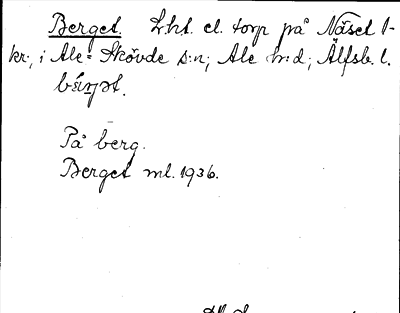 Berget. Lht. el. torp på Näset 1-
kr., i Ale-Skövde s:n, Ale h:d, Älfsb. l.
På berg.
Berget ml. 1936.